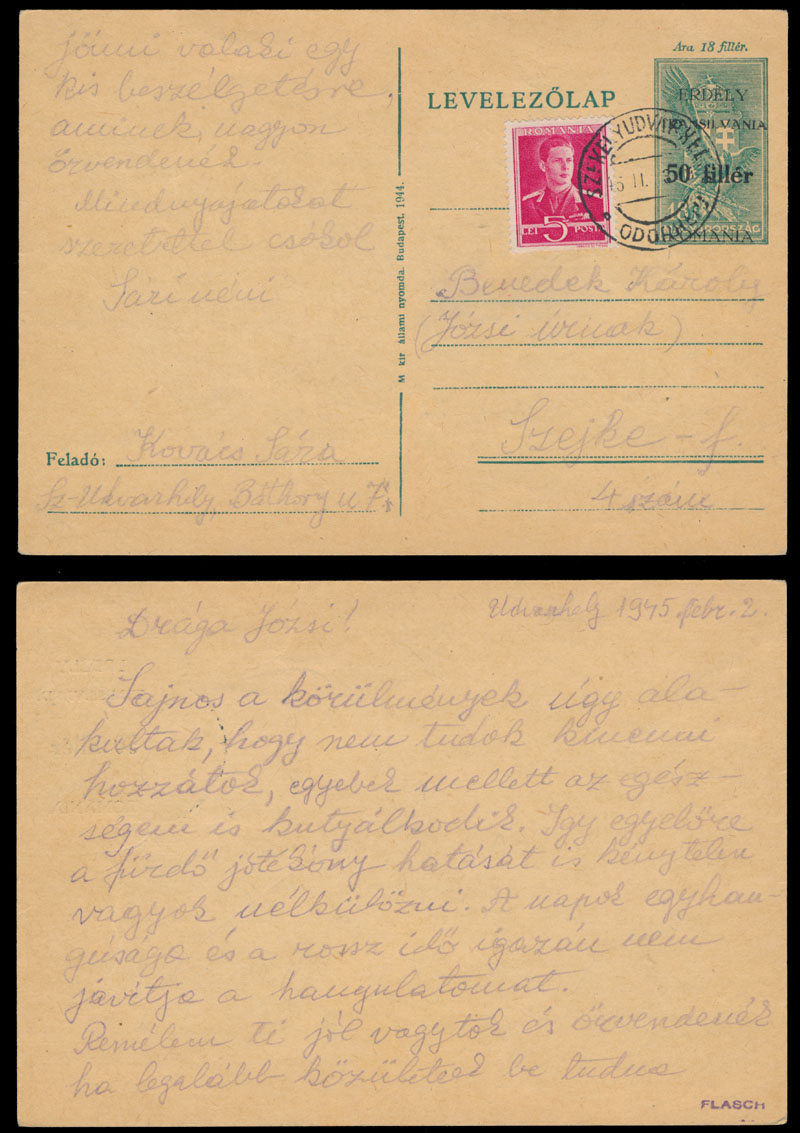 jönni valaki egy
kis beszélgetésre,
aminek nagyon
örvendenék.
Mindnyájatokat
szeretettel csókol
Sári néni
Feladó: Kovács Sára
Sz-Udvarhely, Báthory u 7.
M. kir. állami nyomda. Budapest, 1944.
Ára 18 fillér.
LEVELEZŐLAP
ROMANIA
5 LEI POSTA
ERDÉLY
TRANSILVANIA
50 fillér
MAGYARORSZÁG
ROMANIA
SZÉKELYUDVARHELY
45 II.
ODORHEIU
Benedek Károly
(Józsi úrnak)
Szejke-f.
4 szám
Udvarhely 1945 febr. 2.
Drága Józsi!
Sajnos a körülmények úgy ala-
kultak, hogy nem tudok kimenni
hozzátok, egyebek mellett az egész-
ségem is kutyálkodik. Igy egyelőre
a fürdő jótékony hatását is kénytelen
vagyok nélkülözni. A napok egyhan-
gúsága és a rossz idő igazán nem
javítja a hangulatomat.
Remélem ti jól vagytok és örvendenék
ha legalább közületek be tudna
FLASCH